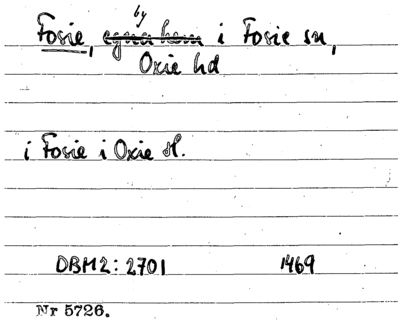 by
Fosie, egna hem i Fosie sn,
Oxie hd
i Fosie i Oxie sl.
DBM2: 2701 1469
Nr 5726.